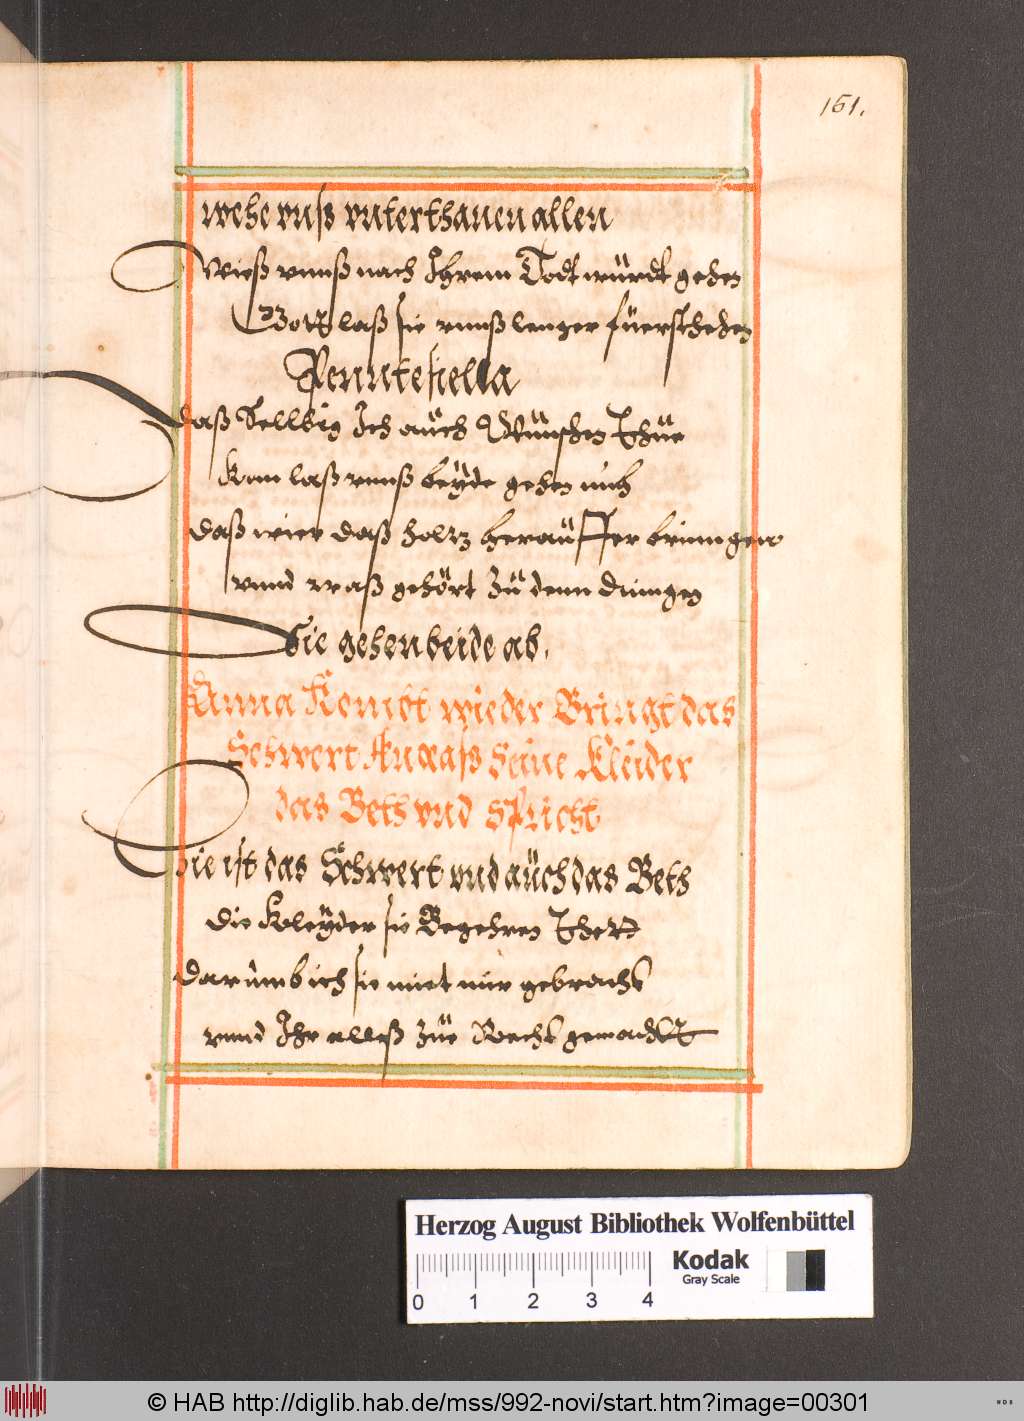 161.
wehe vnß vnterthanen allen
Wieß vnnß nach Ihrem Todt würdt gehen
Gott laß sie vnnß lenger füerstehen
Penntesiella
Daß Selbig Ich auch Wünschen Thüe
Kom laß vnnß beyde gehen nuh
Daß wier daß holtz herauffer bringen
vnnd waß gehört zü denn dingen
Sie gehen beide ab.
Anna Kombt wieder Bringt das
Schwert Auxaß Seine Kleider
das Beth vnd Spricht
Hie ist das Schwert vnd aüch das Beth
Die Kleyder sie Begehren Thett
Darumb ich sie miet mir gebracht
vnnd Ihr alleß züe Recht gemacht
Herzog August Bibliothek Wolfenbüttel
Kodak
Gray Scale
0 1 2 3 4
© HAB http://diglib.hab.de/mss/992-novi/start.htm?image=00301